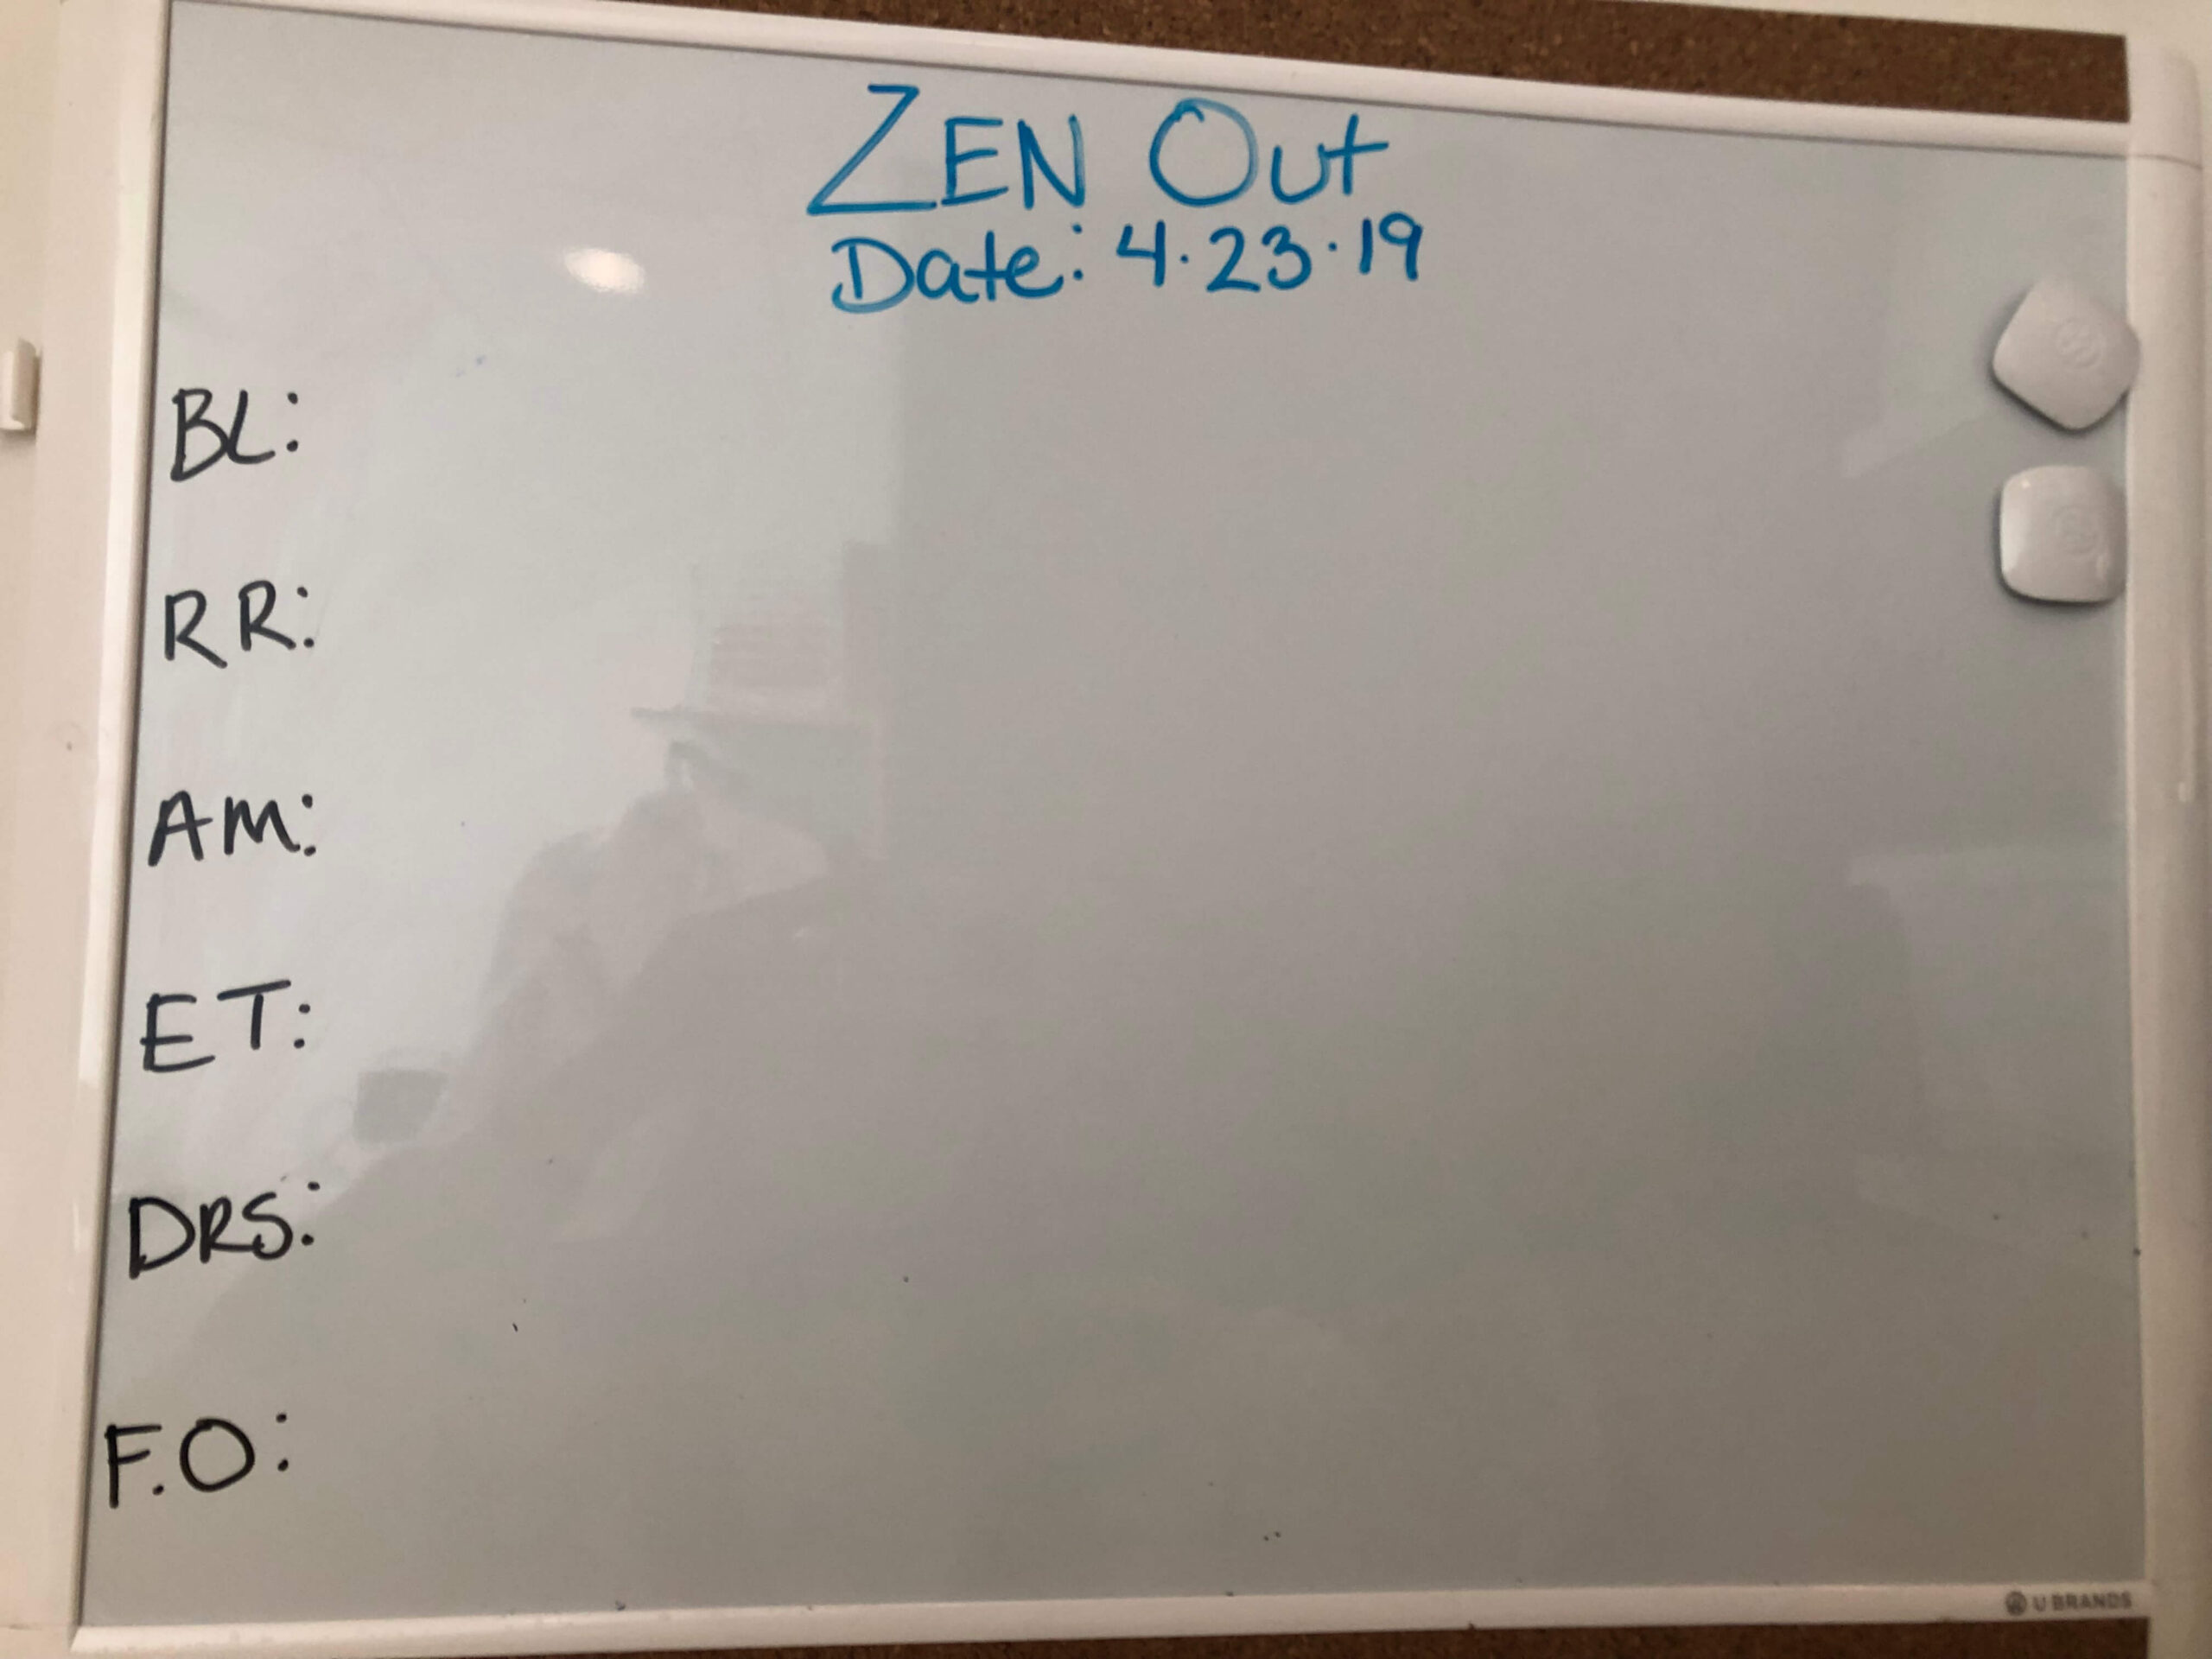 ZEN Out
Date: 4.23.19
BL:
RR:
AM:
ET:
DRS:
F.O:
U BRANDS